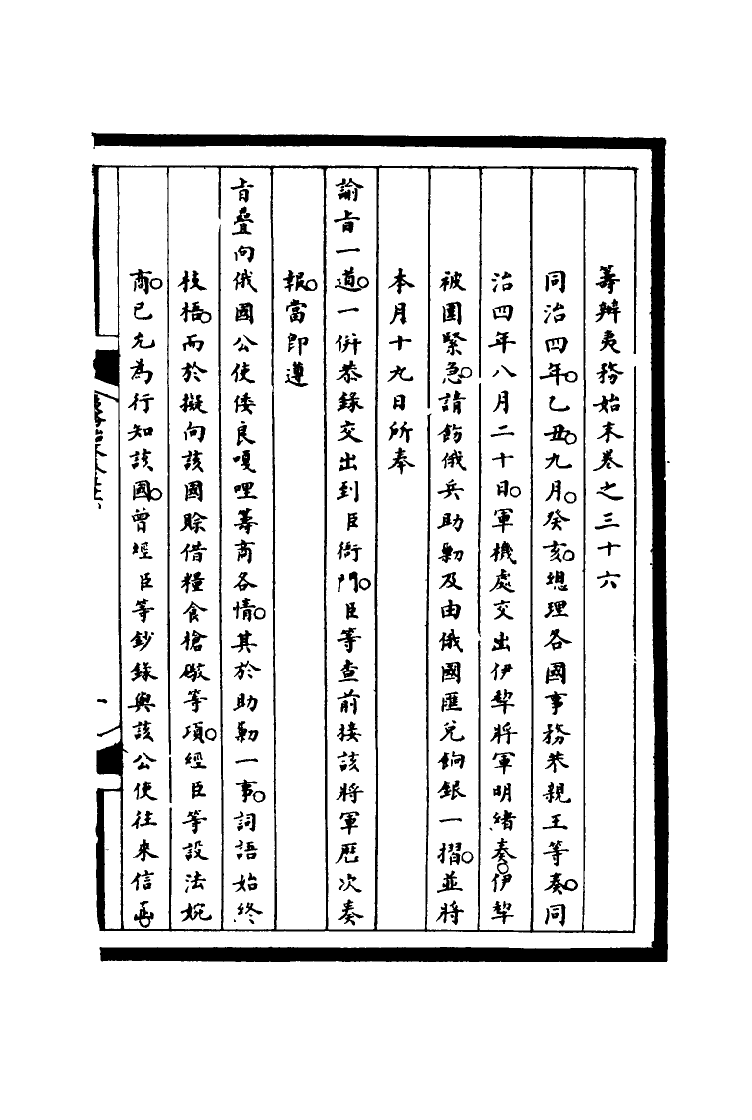 籌辦夷務始末卷之三十六
同治四年。乙丑。九月。癸亥。總理各國事務恭親王等奏。同
治四年八月二十日。軍機處交出伊犂將軍明緒奏。伊犂
被圍緊急。請飭俄兵助勦及由俄國匯兌餉銀一摺。並將
本月十九日所奉
諭旨一道。一併恭錄交出到臣衙門。臣等查前接該將軍歷次奏
報。當即遵
旨疊向俄國公使倭良嘎哩籌商各情。其於助勦一事。詞語始終
枝梧。而於擬向該國賒借糧食槍礮等項。經臣等設法婉
商。已允為行知該國。曾經臣等鈔錄與該公使往來信函